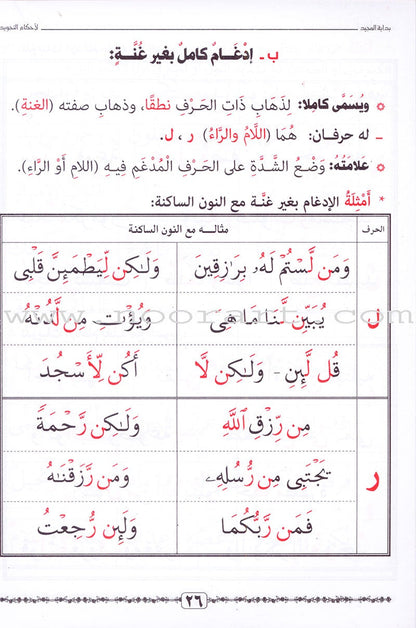 بداية المجيد
لأحكام التجويد
ب - إِدْغَـامٌ كامِلٌ بغَيرِ غُنَّةٍ:
ويُسَمَّى كامِلًا: لِذَهَابِ ذَاتِ الحَـرْفِ نطقًا، وذهابِ صفتهِ (الغنةِ).
– له حرفـان: هُمَا (اللَّامُ والرَّاءُ) ر ، ل.
عَلامَتُهُ: وَضْعُ الشَّدَّةِ على الحَـرْفِ المُدْغَمِ فيـهِ (اللامِ أَوْ الرَّاءِ).
* أَمْثِلَةُ الإدغامِ بغير غنَّة مع النون الساكنة:
الحرف مثالـه مع النون الساكنة
وَمَن لَّسْتُمْ لَهُۥ بِرَٰزِقِينَ وَلَـٰكِن لِّيَطْمَئِنَّ قَلْبِى
ل يُبَيِّن لَّنَا مَا هِىَ وَيُؤْتِ مِن لَّدُنْهُ
قُل لَّئِنِ - وَلَـٰكِن لَّا أَكُن لِّأَسْجُدَ
مِن رِّزْقِ ٱللَّهِ وَلَـٰكِن رَّحْمَةً
ر يَجْتَبِى مِن رُّسُلِهِۦ وَمَن رَّزَقْنَـٰهُ
فَمَن رَّبُّكُمَا وَلَئِن رُّجِعْتُ
٢٦
www.noorart.com